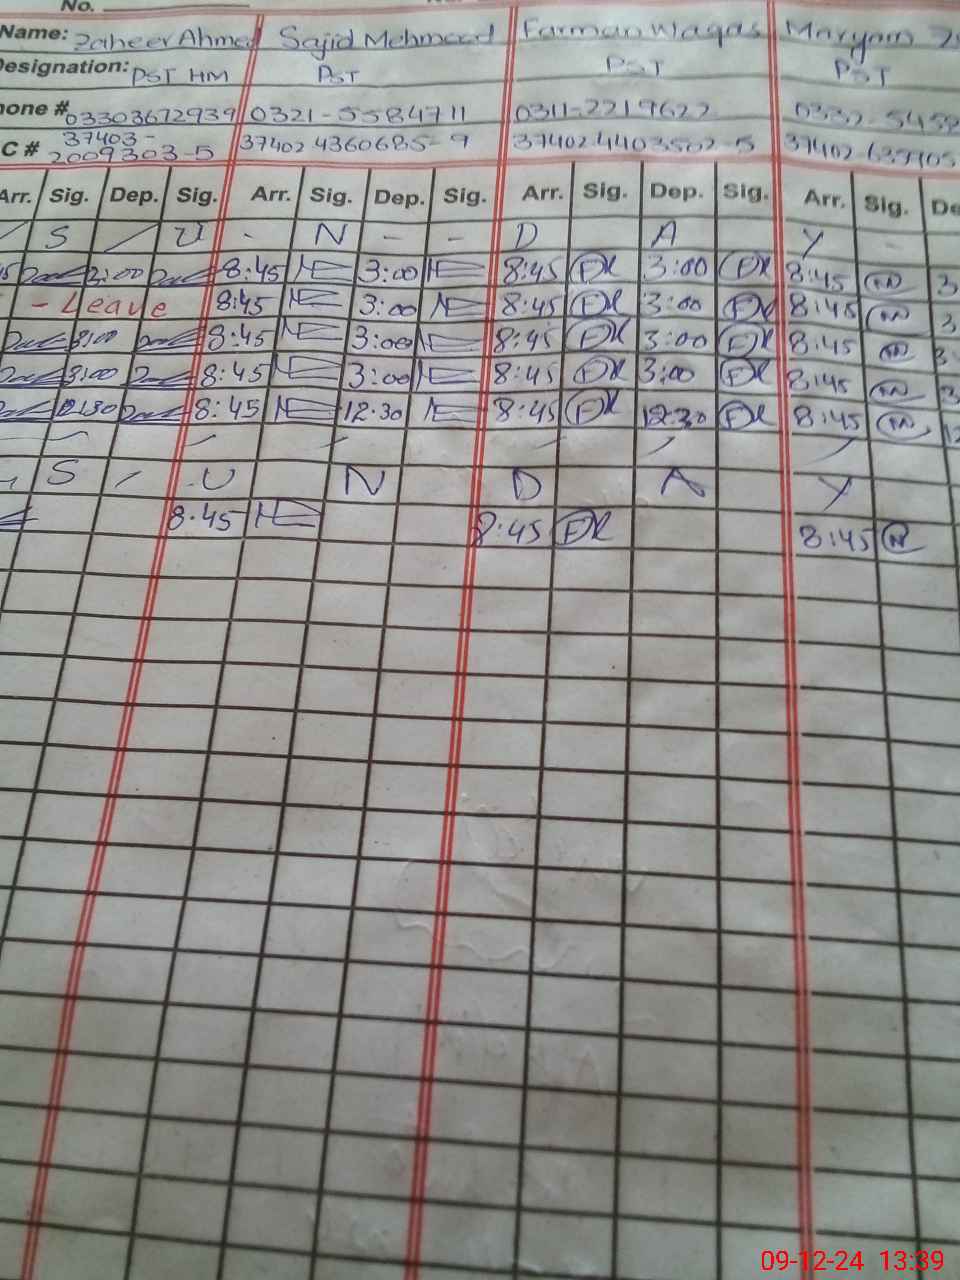 No.
Name: Zaheer Ahmed Sajid Mehmood Farman Waqas Maryam
Designation: PST HM PST PST PST
hone # 03303672939 0321-5584711 0311-2219622 0332-5458
C # 37403-2009303-5 37402 4360685-9 37402-4403502-5 37402-
Arr. Sig. Dep. Sig. Arr. Sig. Dep. Sig. Arr. Sig. Dep. Sig. Arr. Sig. De
S U N D A Y
3:00 8:45 3:00 8:45 3:00 8:45 3
- Leave 8:45 3:00 8:45 3:00 8:45 3
3:00 8:45 3:00 8:45 3:00 8:45 3
3:00 8:45 3:00 8:45 3:00 8:45 3
12:30 8:45 12:30 8:45 12:30 8:45 12
S U N D A Y
8:45 8:45 8:45
09-12-24 13:39